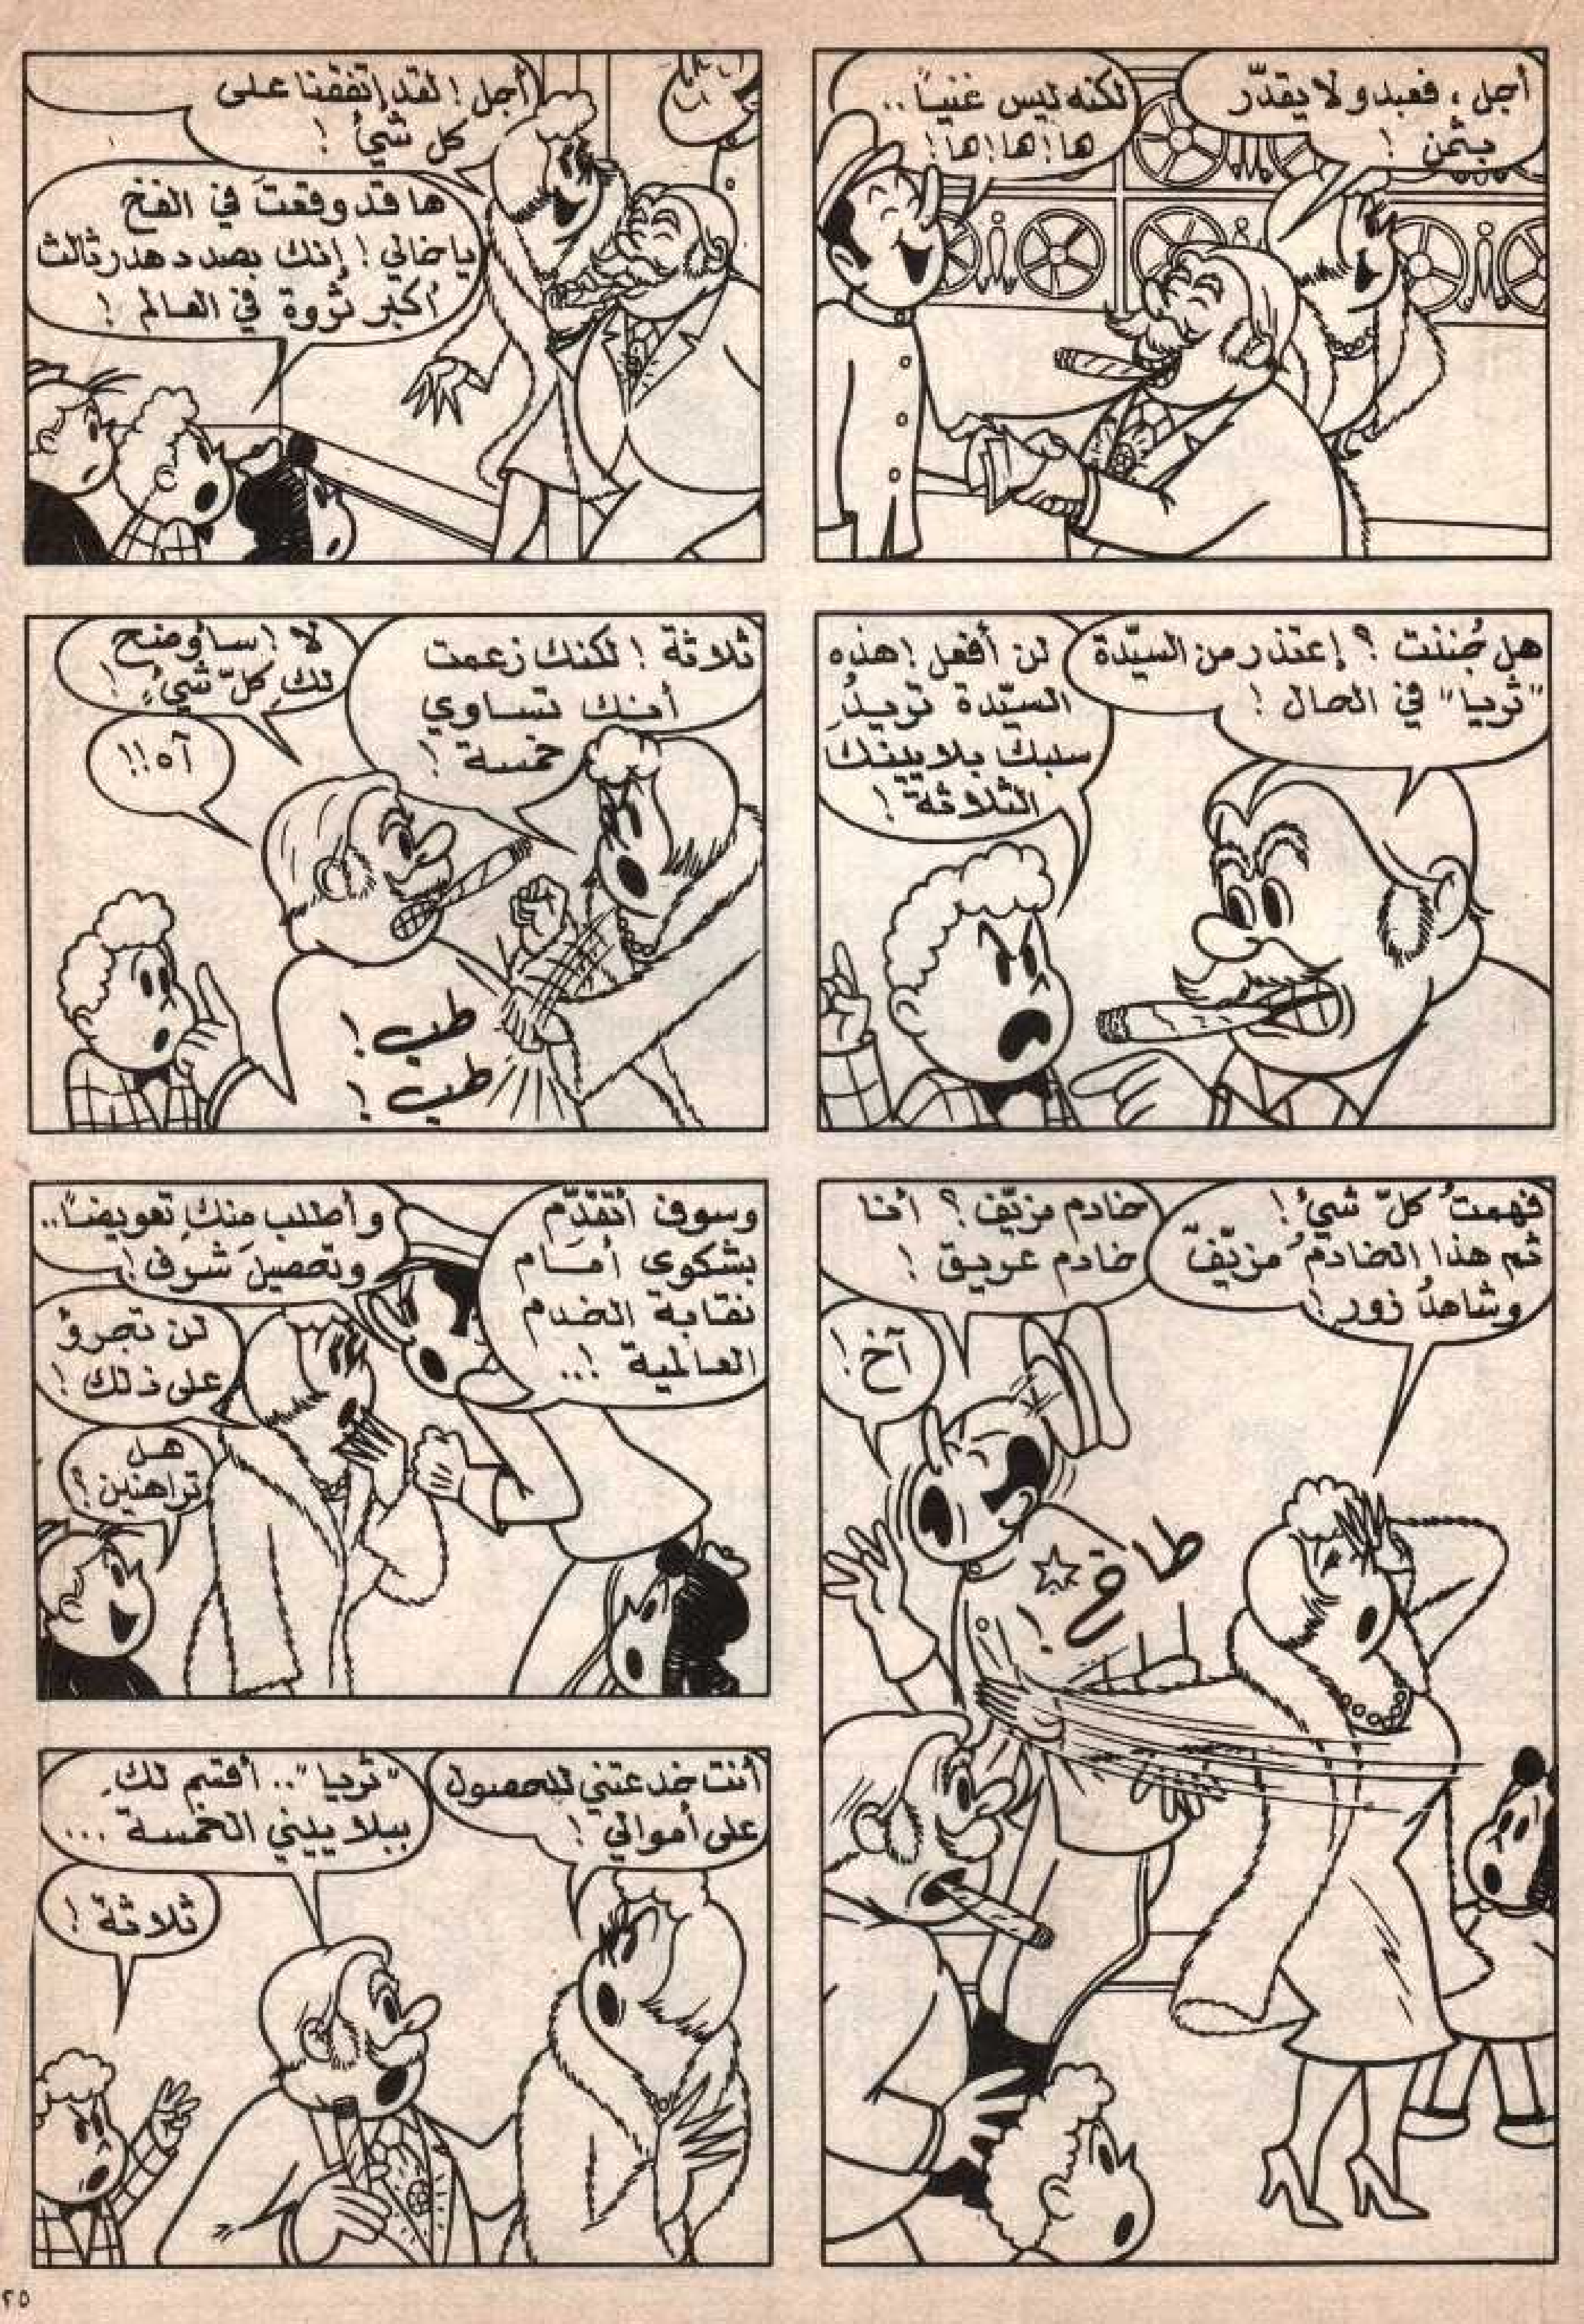 أجل، فعبدو لا يقدّر
بثمن!
لكنه ليس غنياً..
ها!ها!ها!
أجل! لقد إتفقنا على
كل شيْ!
ها قد وقعتَ في الفخ
يا خالي! إنك بصدد هدر ثالث
أكبر ثروة في العالم!
هل جُننت؟ إعتذر من السيّدة
"ثريا" في الحال!
لن أفعل! هذه
السيّدة تريدُ
سلبك بلايينك
الثلاثة!
ثلاثة! لكنك زعمت
أنك تساوي
خمسة!
لا! سأوضح
لكِ كلّ شيْءٍ!
آه!!
طب!
طب!
فهمتُ كلّ شيْ!
ثم هذا الخادمُ مزيّفٌ
وشاهدُ زور!
خادم مزيّف؟ أنا
خادم عريق!
آخ!
طاق!
وسوف أتقدّم
بشكوى أمام
نقابة الخدم
العالمية!..
وأطلب منكِ تعويضاً..
وتحصيلَ شرف!
لن تجرؤ
على ذلك!
هل
تراهنين؟
أنت خدعتني للحصول
على أموالي!
"ثريا".. أقسم لكِ
ببلاييني الخمسة...
ثلاثة!
٢٥